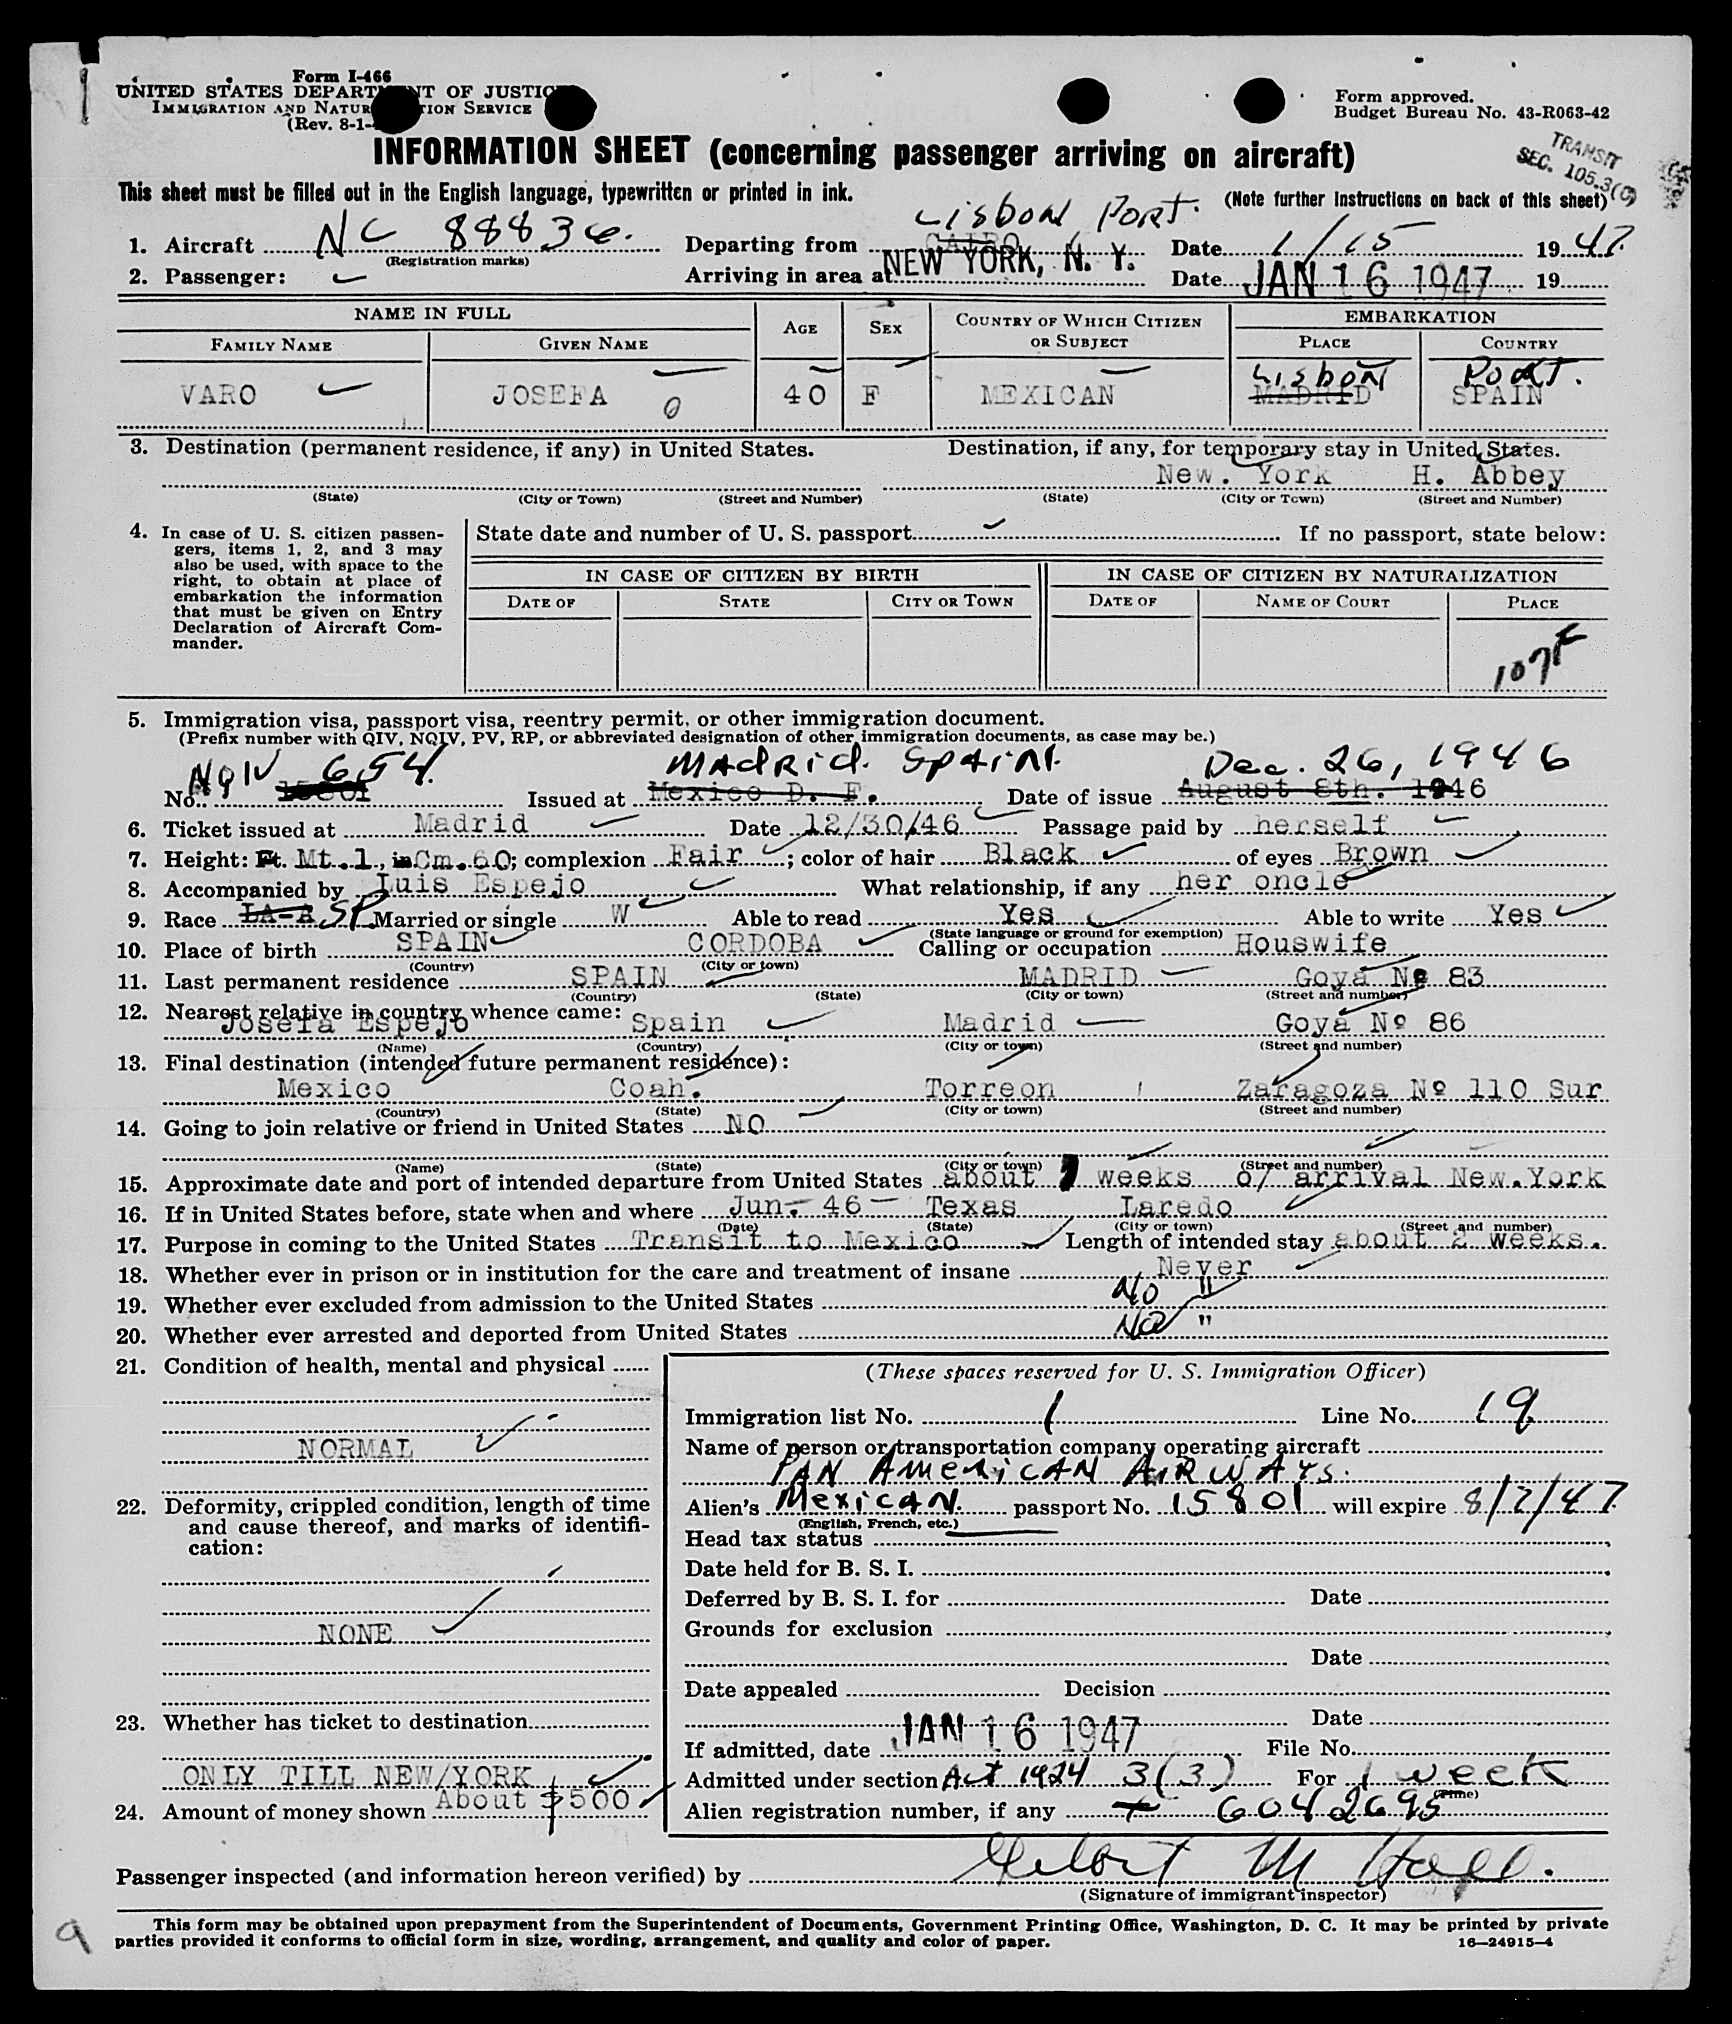 Form I-466
UNITED STATES DEPARTMENT OF JUSTICE
IMMIGRATION AND NATURALIZATION SERVICE
(Rev. 8-1-
Form approved.
Budget Bureau No. 43-R063-42
TRANSIT
SEC. 105.3(C)
INFORMATION SHEET (concerning passenger arriving on aircraft)
This sheet must be filled out in the English language, typewritten or printed in ink.
(Note further instructions on back of this sheet)
1. Aircraft NC 88836. Departing from CAIRO Lisbon Port. Date 1/15 1947
(Registration marks)
2. Passenger: Arriving in area at NEW YORK, N. Y. Date JAN 16 1947 19
NAME IN FULL AGE SEX COUNTRY OF WHICH CITIZEN OR SUBJECT EMBARKATION
FAMILY NAME GIVEN NAME PLACE COUNTRY
Lisbon Port.
VARO JOSEFA 0 40 F MEXICAN MADRID SPAIN
3. Destination (permanent residence, if any) in United States. Destination, if any, for temporary stay in United States.
New. York H. Abbey
(State) (City or Town) (Street and Number) (State) (City or Town) (Street and Number)
4. In case of U. S. citizen passengers, items 1, 2, and 3 may also be used, with space to the right, to obtain at place of embarkation the information that must be given on Entry Declaration of Aircraft Commander.
State date and number of U. S. passport If no passport, state below:
IN CASE OF CITIZEN BY BIRTH IN CASE OF CITIZEN BY NATURALIZATION
DATE OF STATE CITY OR TOWN DATE OF NAME OF COURT PLACE
107F
5. Immigration visa, passport visa, reentry permit, or other immigration document.
(Prefix number with QIV, NQIV, PV, RP, or abbreviated designation of other immigration documents, as case may be.)
NQIV 654. Madrid. Spain. Dec. 26, 1946
No.: 15801 Issued at Mexico D. F. Date of issue August 8th. 1946
6. Ticket issued at Madrid Date 12/30/46 Passage paid by herself
7. Height: Ft. Mt.1, in Cm.60; complexion Fair; color of hair Black of eyes Brown
8. Accompanied by Luis Espejo What relationship, if any her oncle
9. Race LA-A SP. Married or single W Able to read Yes Able to write Yes
(State language or ground for exemption)
10. Place of birth SPAIN CORDOBA Calling or occupation Houswife
(Country) (City or town)
11. Last permanent residence SPAIN MADRID Goya Nº 83
(Country) (State) (City or town) (Street and number)
12. Nearest relative in country whence came:
Josefa Espejo Spain Madrid Goya Nº 86
(Name) (Country) (City or town) (Street and number)
13. Final destination (intended future permanent residence):
Mexico Coah. Torreon Zaragoza Nº 110 Sur
(Country) (State) (City or town) (Street and number)
14. Going to join relative or friend in United States NO
(Name) (State) (City or town) (Street and number)
15. Approximate date and port of intended departure from United States about weeks o/ arrival New.York
16. If in United States before, state when and where Jun. 46 - Texas Laredo
(Date) (State) (City or town) (Street and number)
17. Purpose in coming to the United States Transit to Mexico Length of intended stay about 2 weeks.
18. Whether ever in prison or in institution for the care and treatment of insane Never
19. Whether ever excluded from admission to the United States No "
20. Whether ever arrested and deported from United States No "
21. Condition of health, mental and physical
NORMAL
22. Deformity, crippled condition, length of time and cause thereof, and marks of identification:
NONE
23. Whether has ticket to destination
ONLY TILL NEW/YORK
24. Amount of money shown About $500
(These spaces reserved for U. S. Immigration Officer)
Immigration list No. 1 Line No. 19
Name of person or transportation company operating aircraft
PAN AMERICAN AIRWAYS.
Alien's Mexican. passport No. 15801 will expire 8/7/47
(English, French, etc.)
Head tax status
Date held for B. S. I.
Deferred by B. S. I. for Date
Grounds for exclusion
Date
Date appealed Decision
Date
If admitted, date JAN 16 1947 File No.
Admitted under section Act 1924 3(3) For 1 week
(Time)
Alien registration number, if any 6042695
Passenger inspected (and information hereon verified) by
(Signature of immigrant inspector)
This form may be obtained upon prepayment from the Superintendent of Documents, Government Printing Office, Washington, D. C. It may be printed by private
parties provided it conforms to official form in size, wording, arrangement, and quality and color of paper.
16—24915-4
9